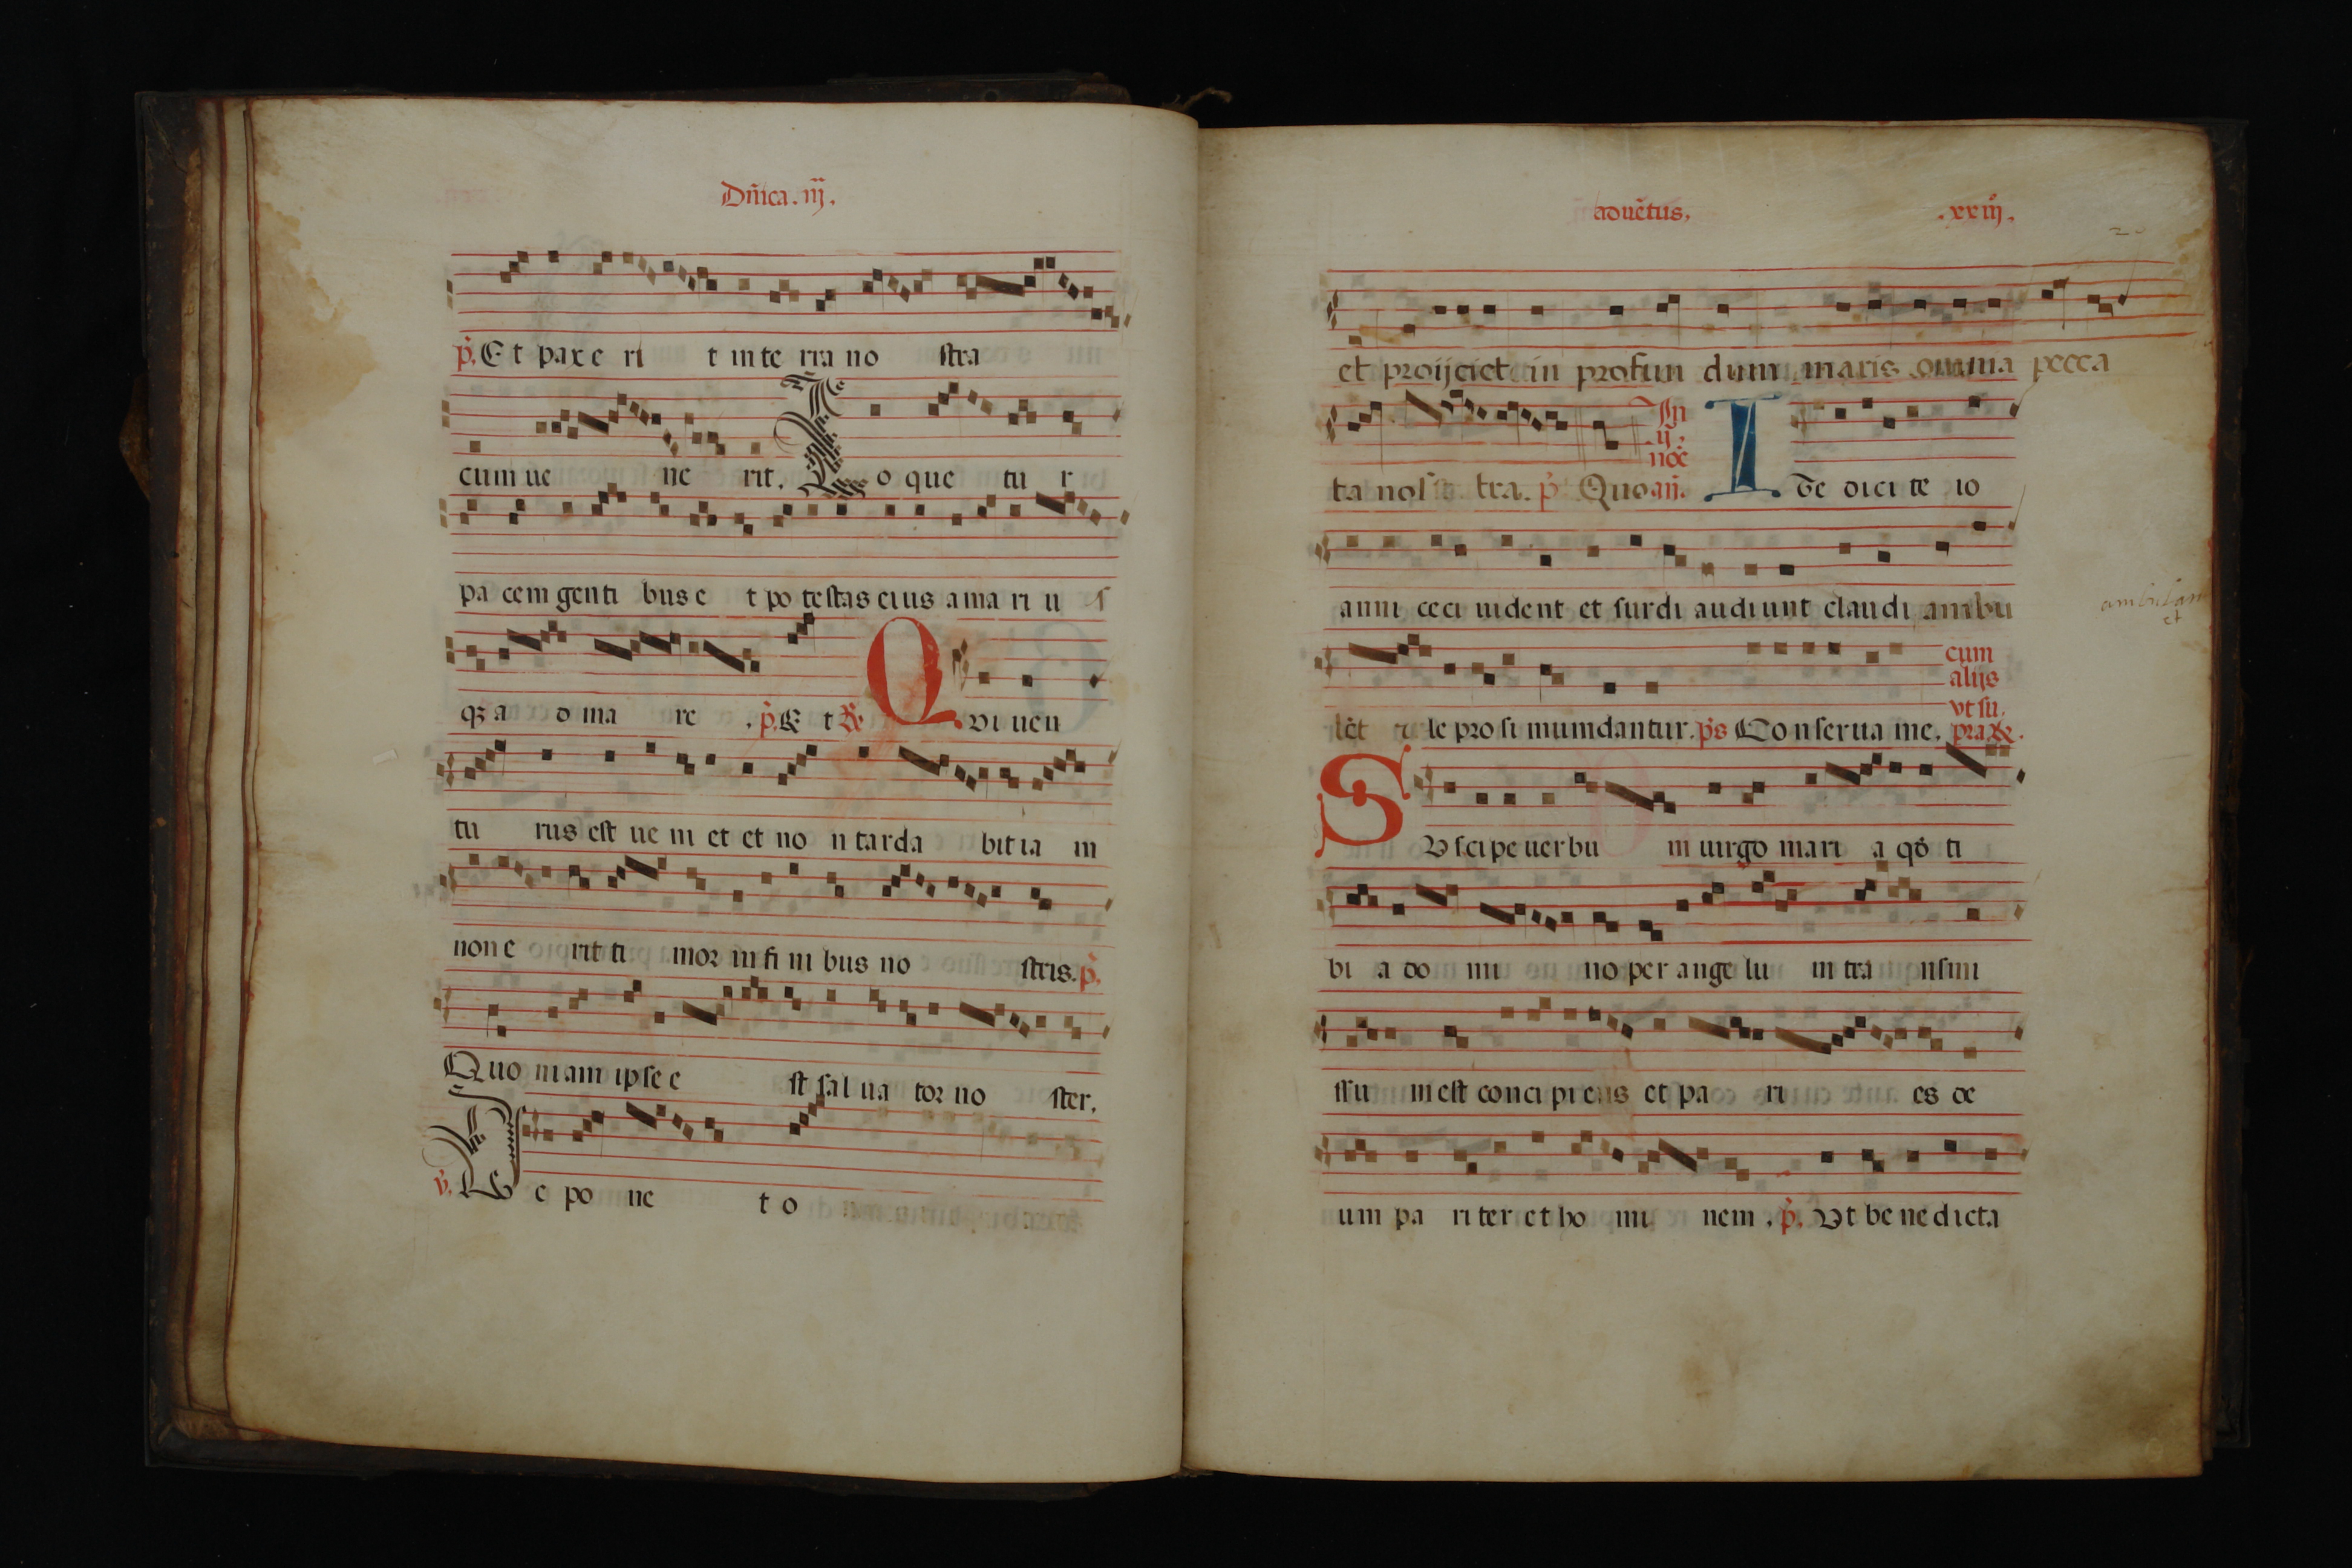 Dñica . iij .
p̃. Et pax e ri t in te rra no stra
cum ue ne rit . Lo que tu r
pa cem genti bus e t po testas eius a ma ri u s
qȝ a d ma re . p̃. E t ℟. Qui uen
tu rus est ue ni et et no n tarda bit ia m
non e rit ti mor in fi ni bus no stris . p̃.
Quo niam ipse e st sal ua tor no ster .
℣. De po ne t o
aduẽtus . .xxiij .
et proijciet in profun dum maris omnia pecca
ta nos tra . p̃ Quo añ. In .ij. noc̃ I te dici te io
anni ceci uident et surdi audiunt claudi ambu
ambulãn et
lãt le pro si mundantur . p̃s Con serua me . cum alijs vt su pra ℟.
S Vsci pe uerbu m uirgo mari a qđ ti
bi a do mi no per ange lu m tra nsmi
ssu m est conci pi ens et pa ri es de
um pa ri ter et ho mi nem . p̃. Vt be ne dicta